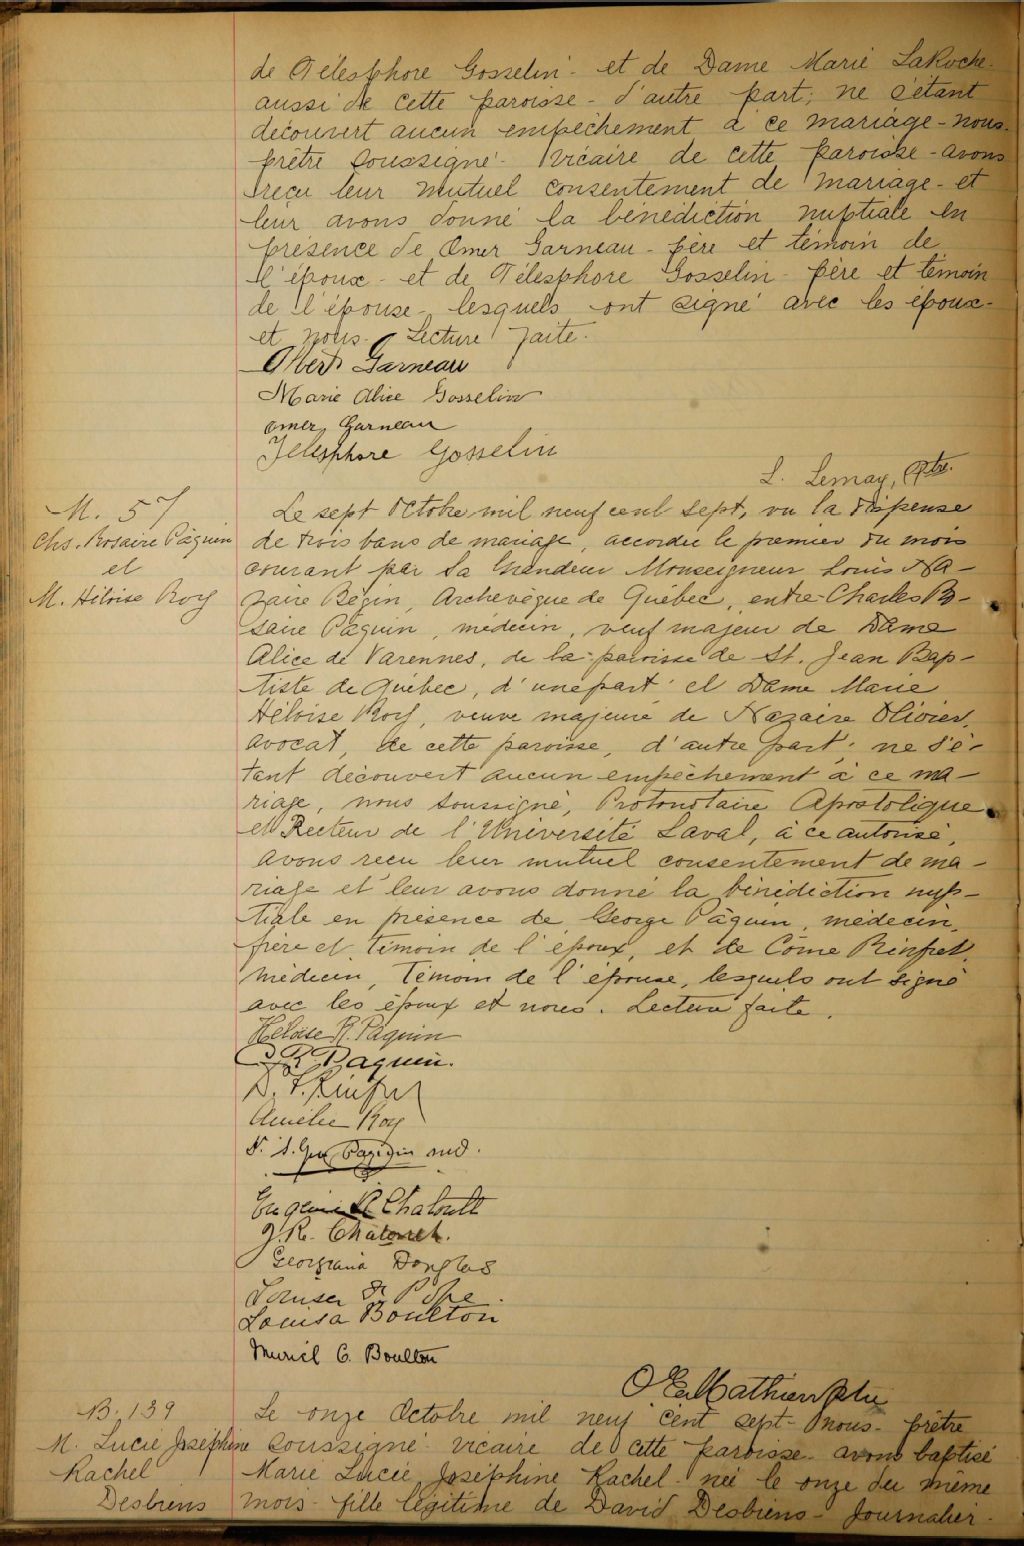 de Télesphore Gosselin - et de Dame Marie LaRoche -
aussi de cette paroisse - d'autre part; ne s'étant
découvert aucun empêchement à ce mariage - nous -
prêtre soussigné - vicaire de cette paroisse - avons
reçu leur mutuel consentement de mariage - et
leur avons donné la bénédiction nuptiale en
présence de Omer Garneau - père et témoin de
l'époux - et de Télesphore Gosselin - père et témoin
de l'épouse - lesquels ont signé avec les époux -
et nous. Lecture faite.
Albert Garneau
Marie Alice Gosselin
Omer Garneau
Télesphore Gosselin
L. Lemay, Ptre.
M. 57
Chs. Rosaire Pâquin
et
M. Héloise Roy
Le sept Octobre mil neuf cent sept, vu la dispense
de trois bans de mariage, accordée le premier du mois
courant par Sa Grandeur Monseigneur Louis Na-
zaire Bégin, Archevêque de Québec, entre Charles Ro-
saire Pâquin, médecin, veuf majeur de Dame
Alice de Varennes, de la paroisse de St. Jean Bap-
tiste de Québec, d'une part et Dame Marie
Héloise Roy, veuve majeure de Nazaire Olivier,
avocat, de cette paroisse, d'autre part; ne s'é-
tant découvert aucun empêchement à ce ma-
riage, nous soussigné, Protonotaire Apostolique
et Recteur de l'Université Laval, à ce autorisé,
avons reçu leur mutuel consentement de ma-
riage et leur avons donné la bénédiction nup-
tiale en présence de George Pâquin, médecin,
frère et témoin de l'époux, et de Côme Rinfret,
médecin, témoin de l'épouse, lesquels ont signé
avec les époux et nous. Lecture faite.
Héloise R. Paquin
C. R. Paquin.
Rinfret
Amélie Roy
Paquin md.
Eugénie R Chaloult
J. R. Chaloult.
Georgiana Douglas
Louisa Pope.
Louisa Boulton
Muriel C. Boulton
O E Mathieu Ptre
B. 139
M. Lucie Joséphine
Rachel
Desbiens
Le onze Octobre mil neuf cent sept - nous - prêtre
soussigné - vicaire de cette paroisse - avons baptisé
Marie Lucie Joséphine Rachel - née le onze du même
mois - fille légitime de David Desbiens - Journalier -